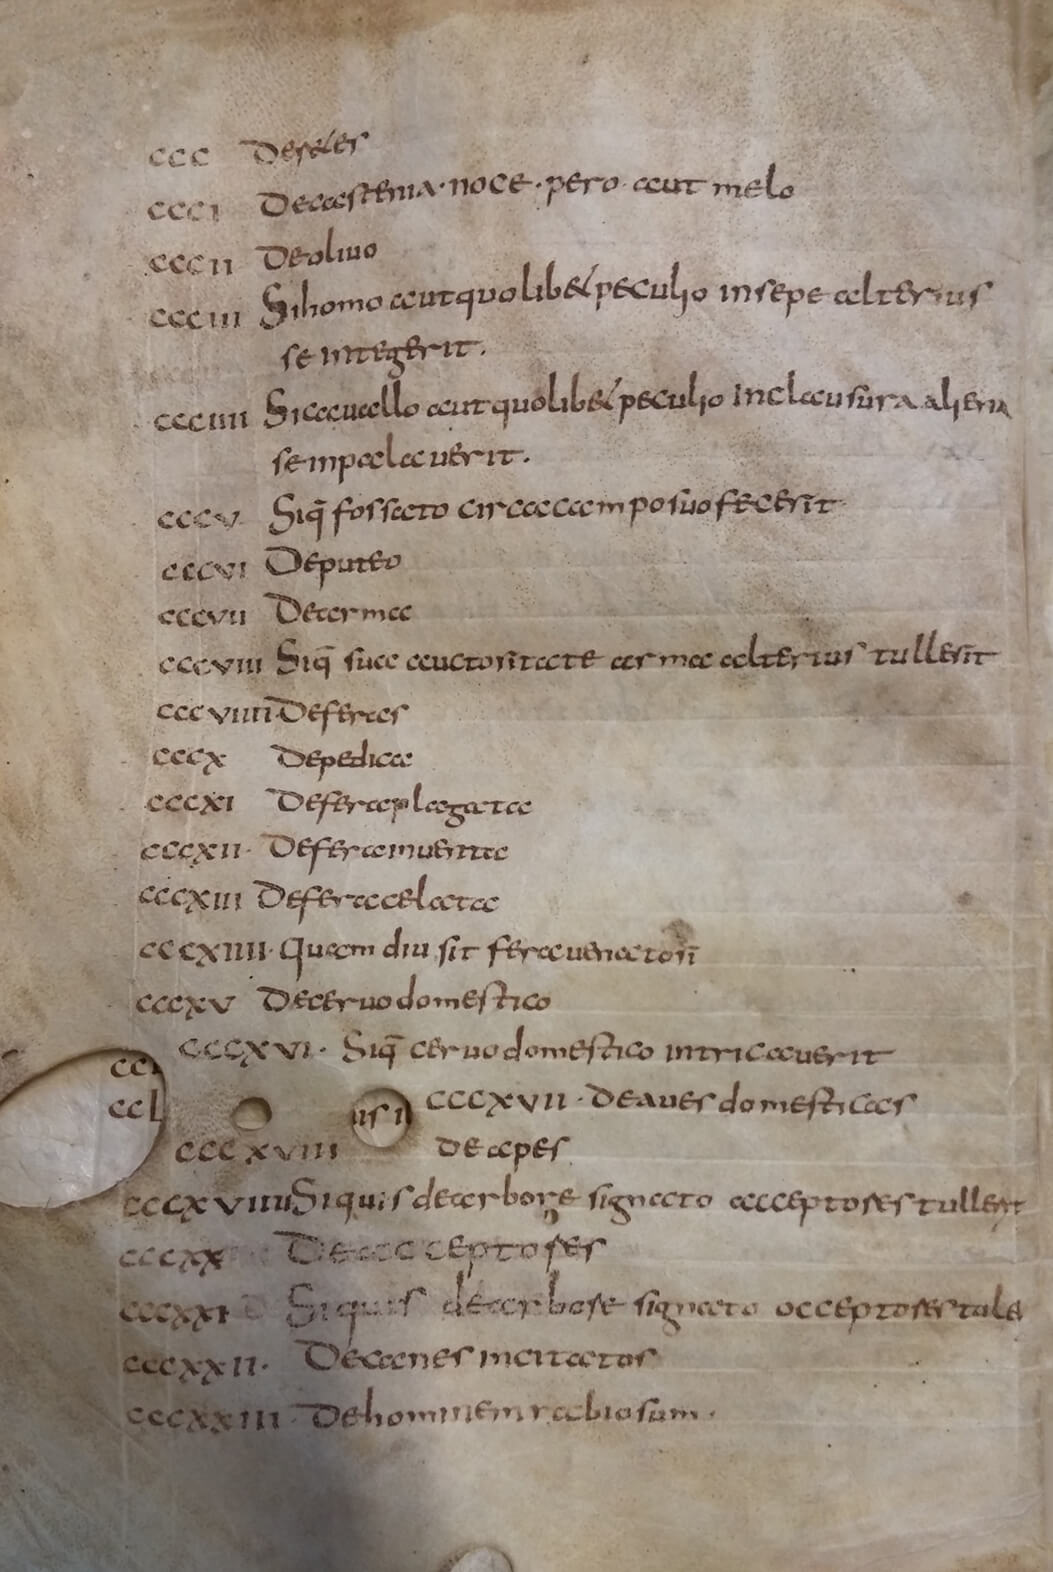 CCC De seles
CCCI De castenia · noce · pero · aut melo
CCCII De olivo
CCCIII Si homo aut quolibet peculio in sepe alterius
se integerit.
CCCIIII Si cavallo aut quolibet peculio in clausura aliena
se inpalaverit.
CCCV Siq̄ fossato circa campo suo fecerit
CCCVI De puteo
CCCVII De arma
CCCVIII Siq̄ sua auctoritate arma alterius tullerit
CCCVIIII De feras
CCCX De pedica
CCCXI De fera plagata
CCCXII · De fera inventa
CCCXIII De fera celata
CCCXIIII · Quam diu sit fera venatori
CCCXV De cervo domestico
CCCXVI · Siq̄ cervo domestico intricaverit
CCCXVII · De aves domesticas
CCCXVIII De apes
CCCXVIIII Si quis de arbore signato acceptores tullerit
CCCXX De acceptores
CCCXXI Si quis de arbore signato acceptores tule
CCCXXII · De canes incitatos
CCCXXIII · De hominem rabiosum ·